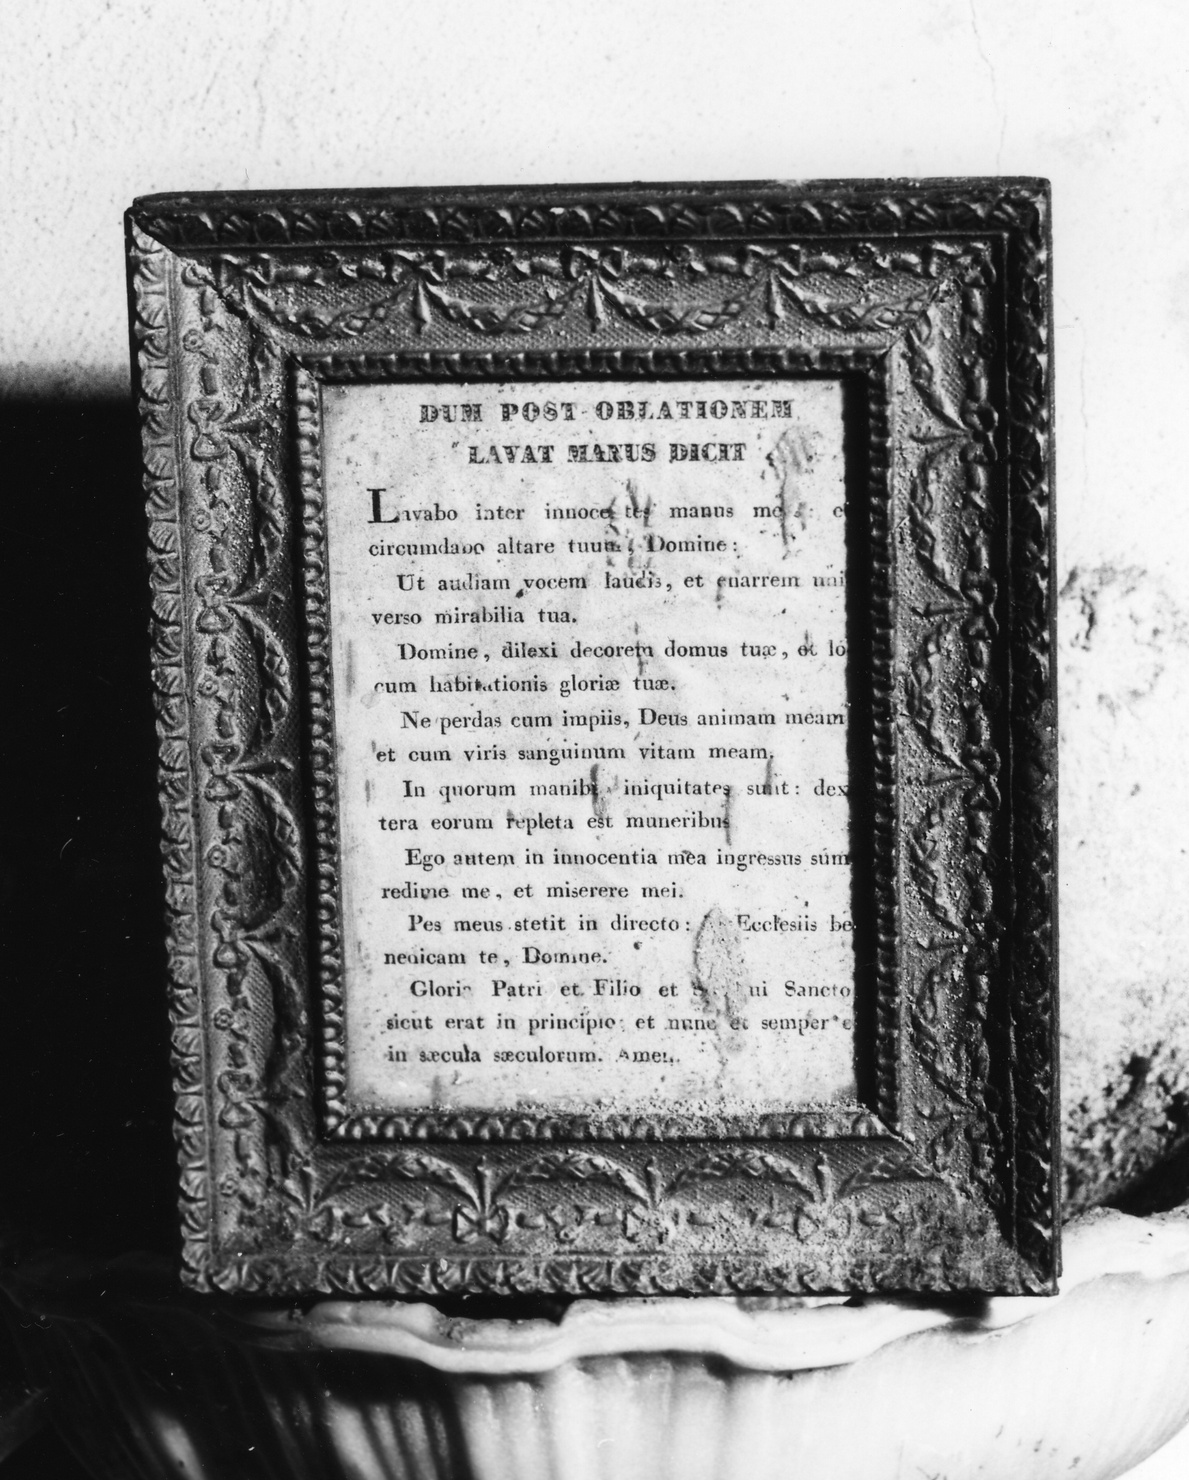 DUM POST OBLATIONEM
LAVAT MANUS DICIT
Lavabo inter manus
circumdabo altare tuum, Domine:
Ut audiam vocem laudis, et enarrem uni
verso mirabilia tua.
Domine, dilexi decorem domus tuæ, et lo
cum habitationis gloriæ tuæ.
Ne perdas cum impiis, Deus animam meam
et cum viris sanguinum vitam meam.
In quorum iniquitates sunt: dex
tera eorum repleta est muneribus
Ego autem in innocentia mea ingressus sum
redime me, et miserere mei.
Pes meus stetit in directo: Ecclesiis be
nedicam te, Domine.
Gloria Patri et Filio et Sancto
sicut erat in principio et nunc et semper
in sæcula sæculorum. Amen.